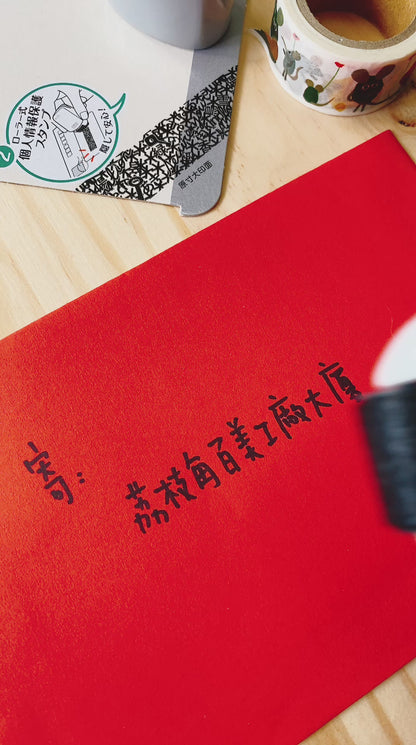 ローラー式
個人情報保護
スタンプ
隠して安心!
原寸大印面
寄:
荔枝角百美工廠大廈